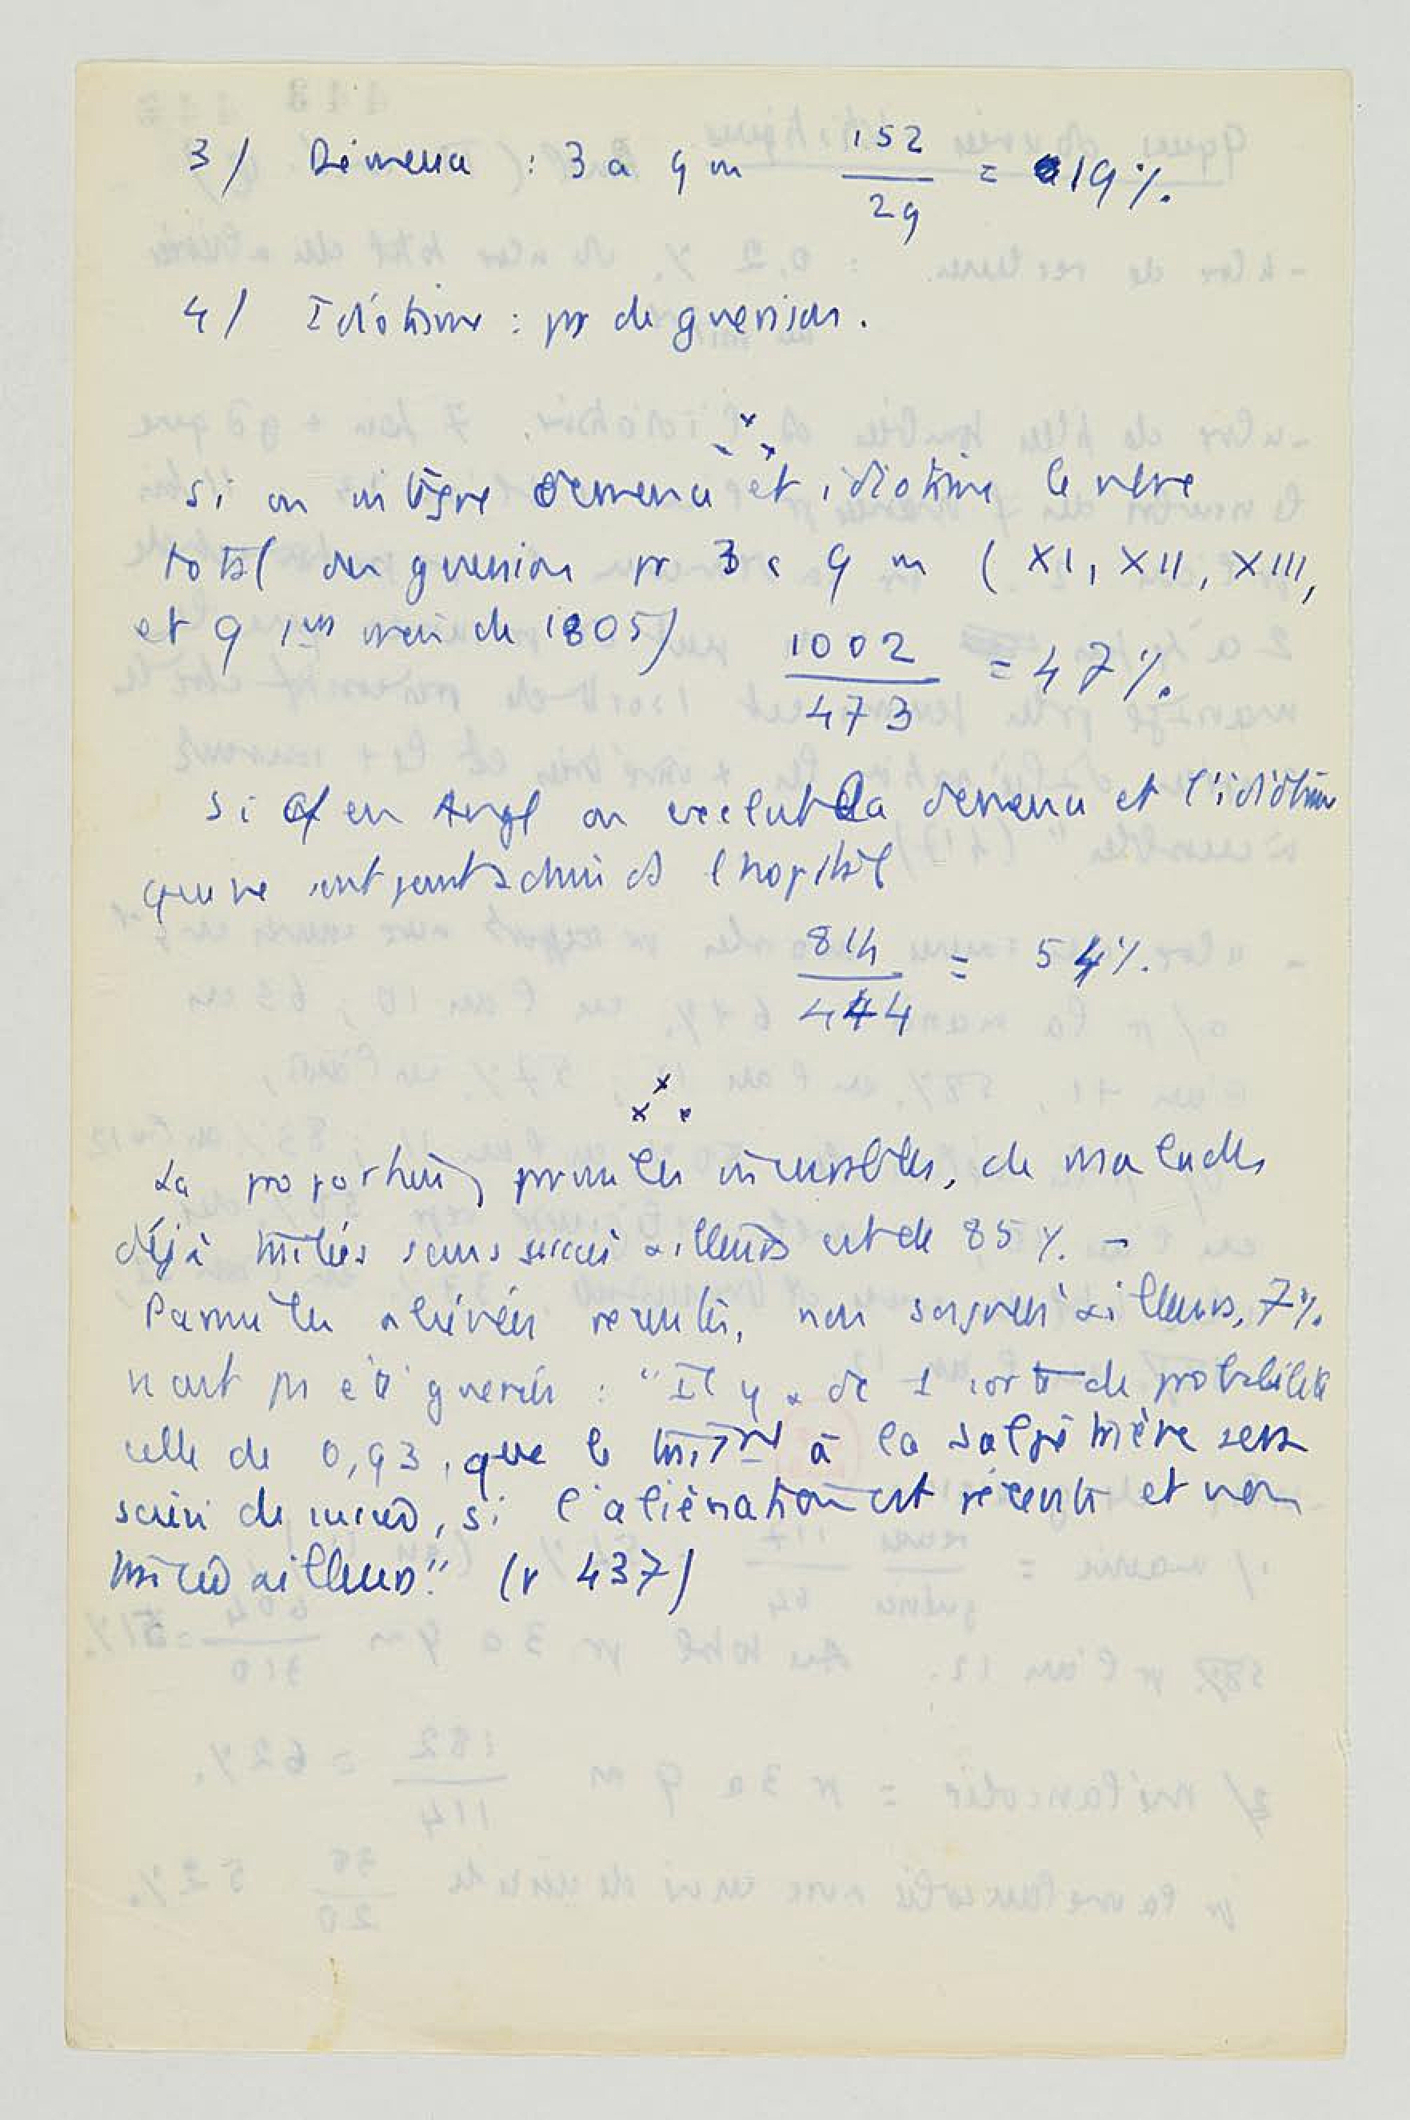 3/ Démence : 3 a 9 m 152/29 = 19%.
4/ Idiotisme : pr de guérison.
Si on intègre démence et idiotisme le
total des guérison pr 3 a 9 m (XI, XII, XIII,
et 9 1ers mois de 1805) 1002/473 = 47%.
Si cf en Angl on exclut la démence et l'idiotisme
qui ne sont pas admis ds l'hopital
814/444 = 54%.
La proportion, parmi les incurables, de malades
déjà traités sans succès ailleurs est de 85%. -
Parmi les aliénés récents, non soignés ailleurs, 7%
n'ont ps été guéris : "Il y a de 1 sorte de probabilité
celle de 0,93, que le trait^mt à la Salpêtrière sera
suivi de succès, si l'aliénation est récente et non
traitée ailleurs." (r 437)